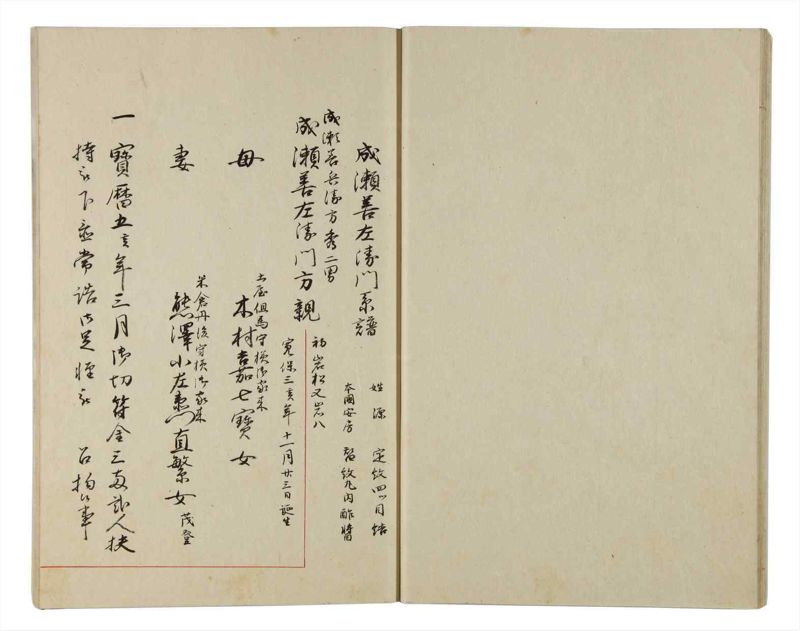 成瀬善左衛門系譜
姓 源 定紋四ツ目結
本国安房 替紋丸内酢醤
成瀬善兵衛方秀二男
成瀬善左衛門方親
初岩松又岩八
寛保三亥年十一月廿三日誕生
土屋但馬守様御家来
母 木村喜茄七寶女
米倉丹後守様御家来
妻 熊澤小左衛門直繁女 茂登
一 寶暦五亥年三月御切符金三両弐人扶
持被下並常詰御足軽被 召抱候事